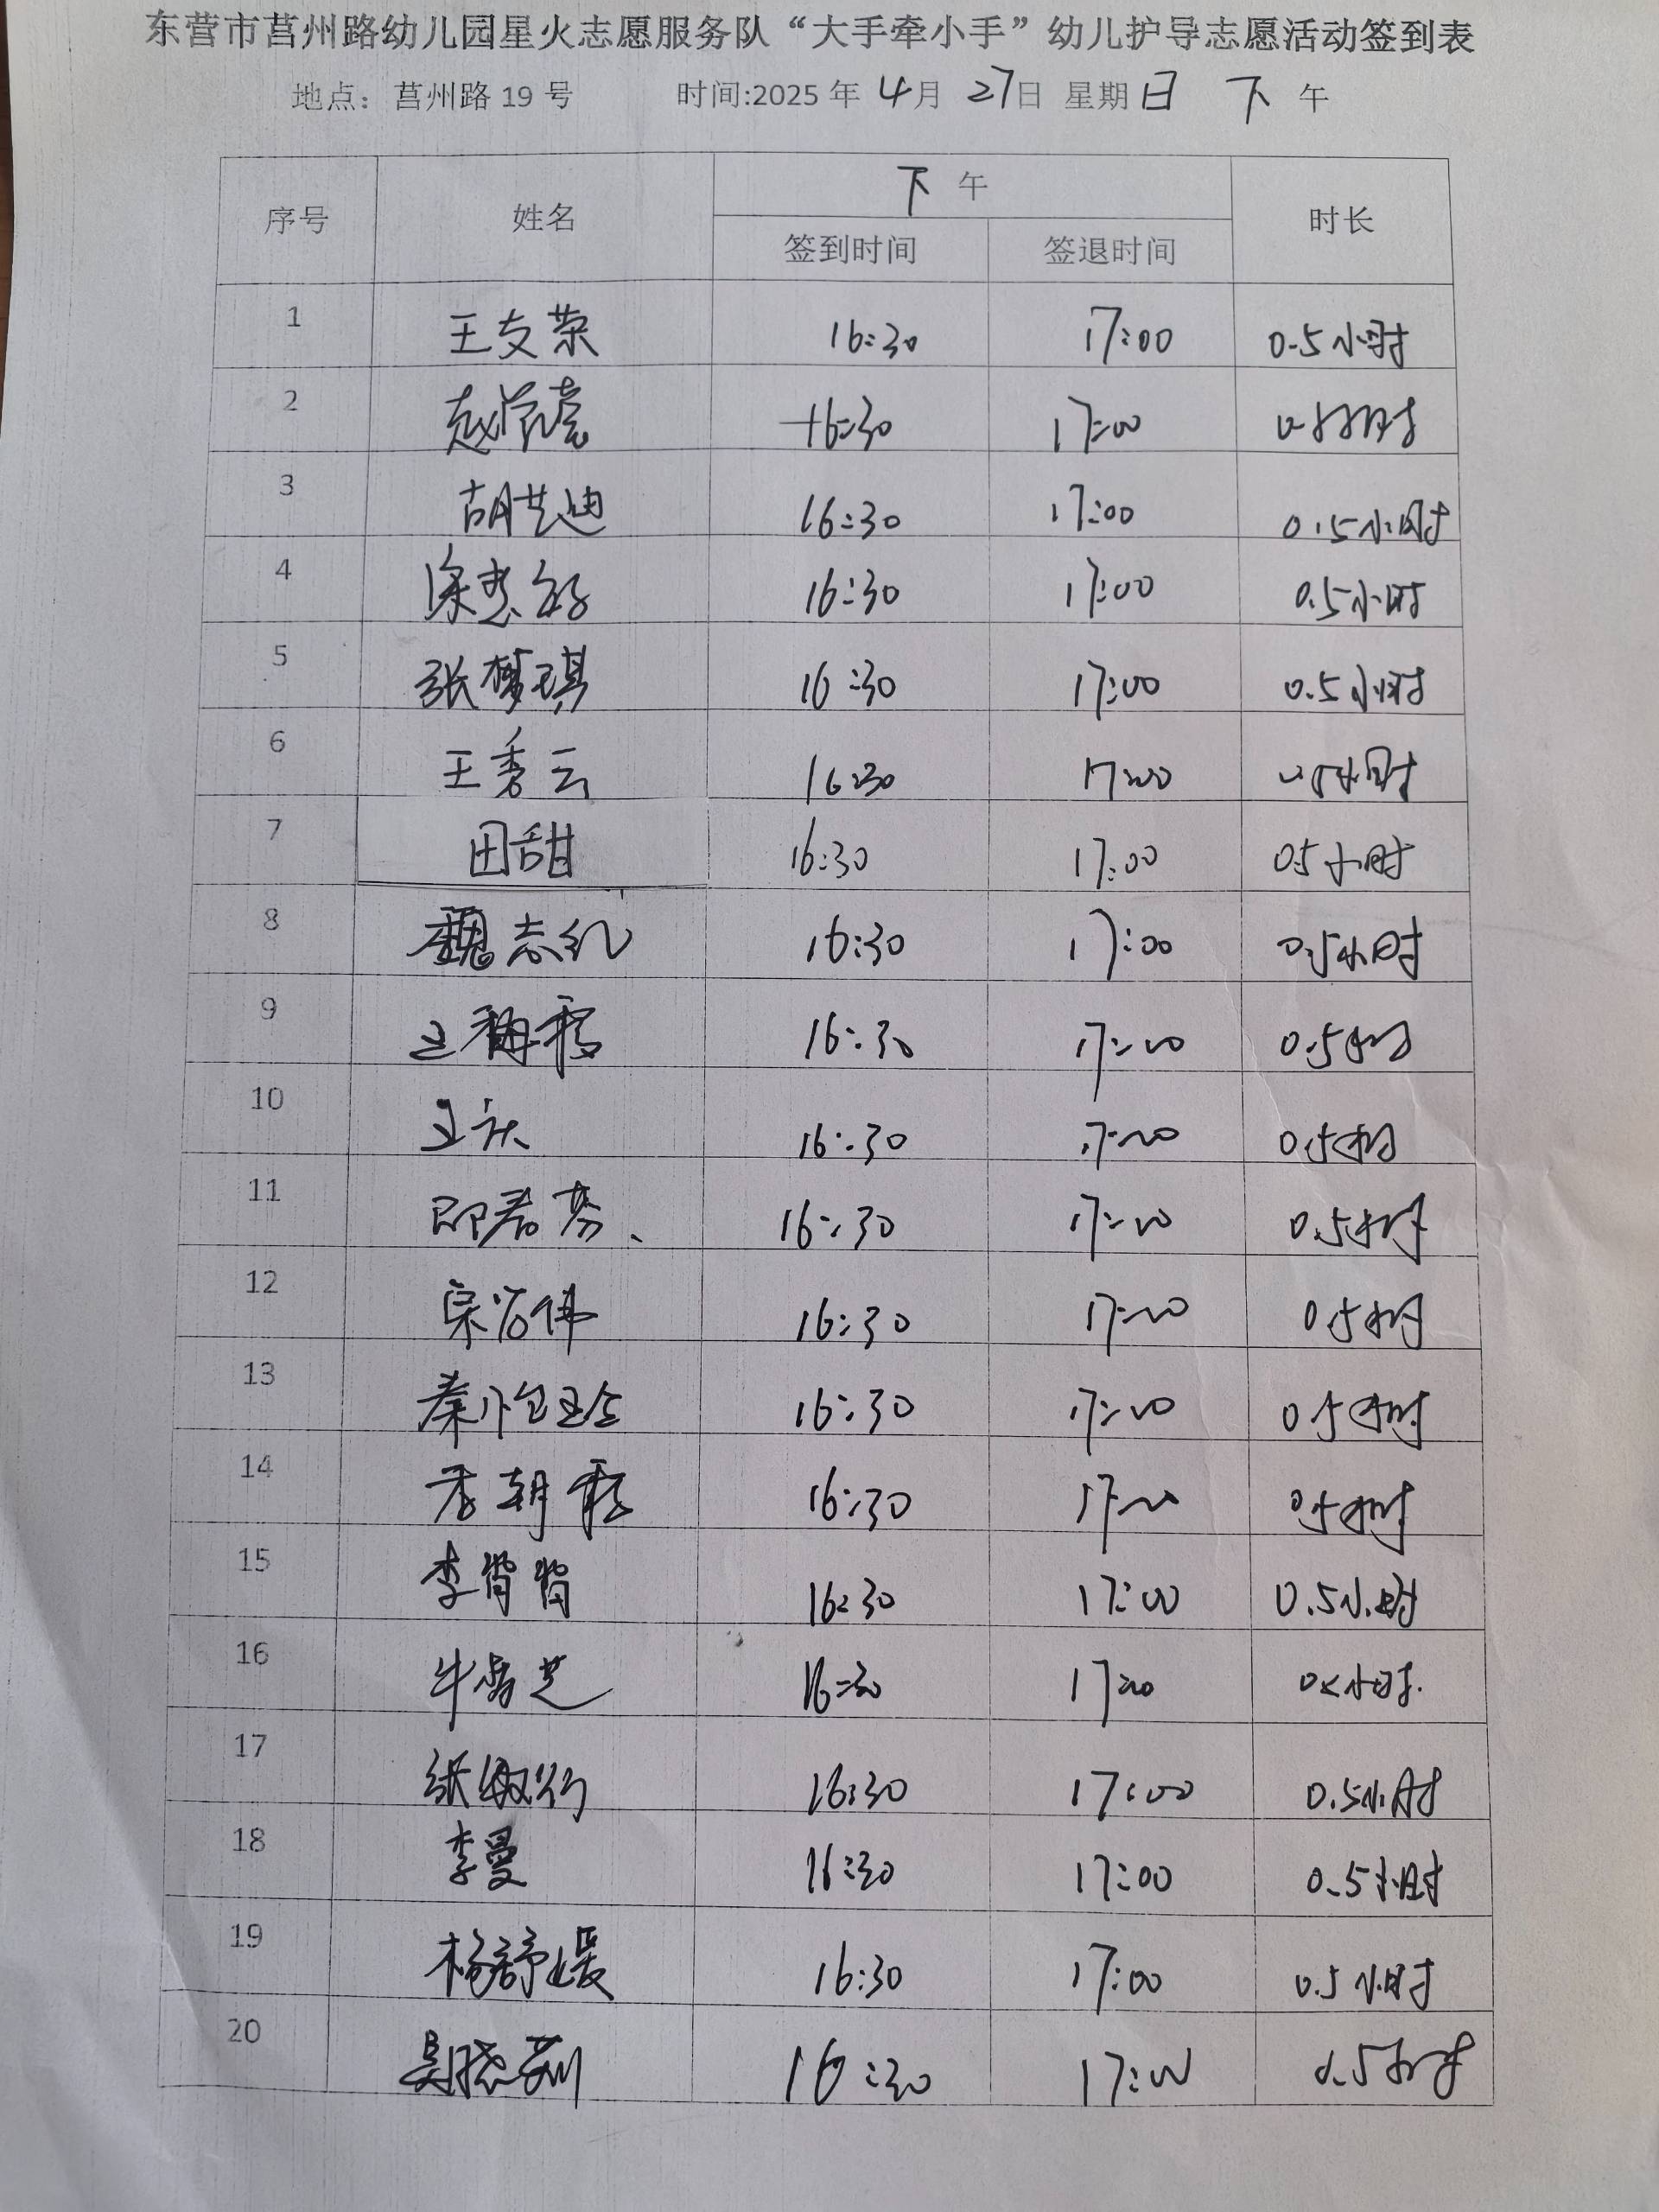 东营市莒州路幼儿园星火志愿服务队“大手牵小手”幼儿护导志愿活动签到表
地点：莒州路 19 号 时间:2025 年 4月 27日 星期日 下 午
序号 姓名 下 午 时长
签到时间 签退时间
1 王友荣 16:30 17:00 0.5小时
2 赵 16:30 17:00 0.5小时
3 胡艺迪 16:30 17:00 0.5小时
4 16:30 17:00 0.5小时
5 张梦琪 16:30 17:00 0.5小时
6 王秀云 16:30 17:00 0.5小时
7 田甜 16:30 17:00 0.5小时
8 魏志红 16:30 17:00 0.5小时
9 王 16:30 17:00 0.5小时
10 王 16:30 17:00 0.5小时
11 16:30 17:00 0.5小时
12 16:30 17:00 0.5小时
13 秦 16:30 17:00 0.5小时
14 朝霞 16:30 17:00 0.5小时
15 李 16:30 17:00 0.5小时
16 牛 芝 16:30 17:00 0.5小时
17 张敏 16:30 17:00 0.5小时
18 李曼 16:30 17:00 0.5小时
19 杨舒媛 16:30 17:00 0.5小时
20 吴晓莉 16:30 17:00 0.5小时